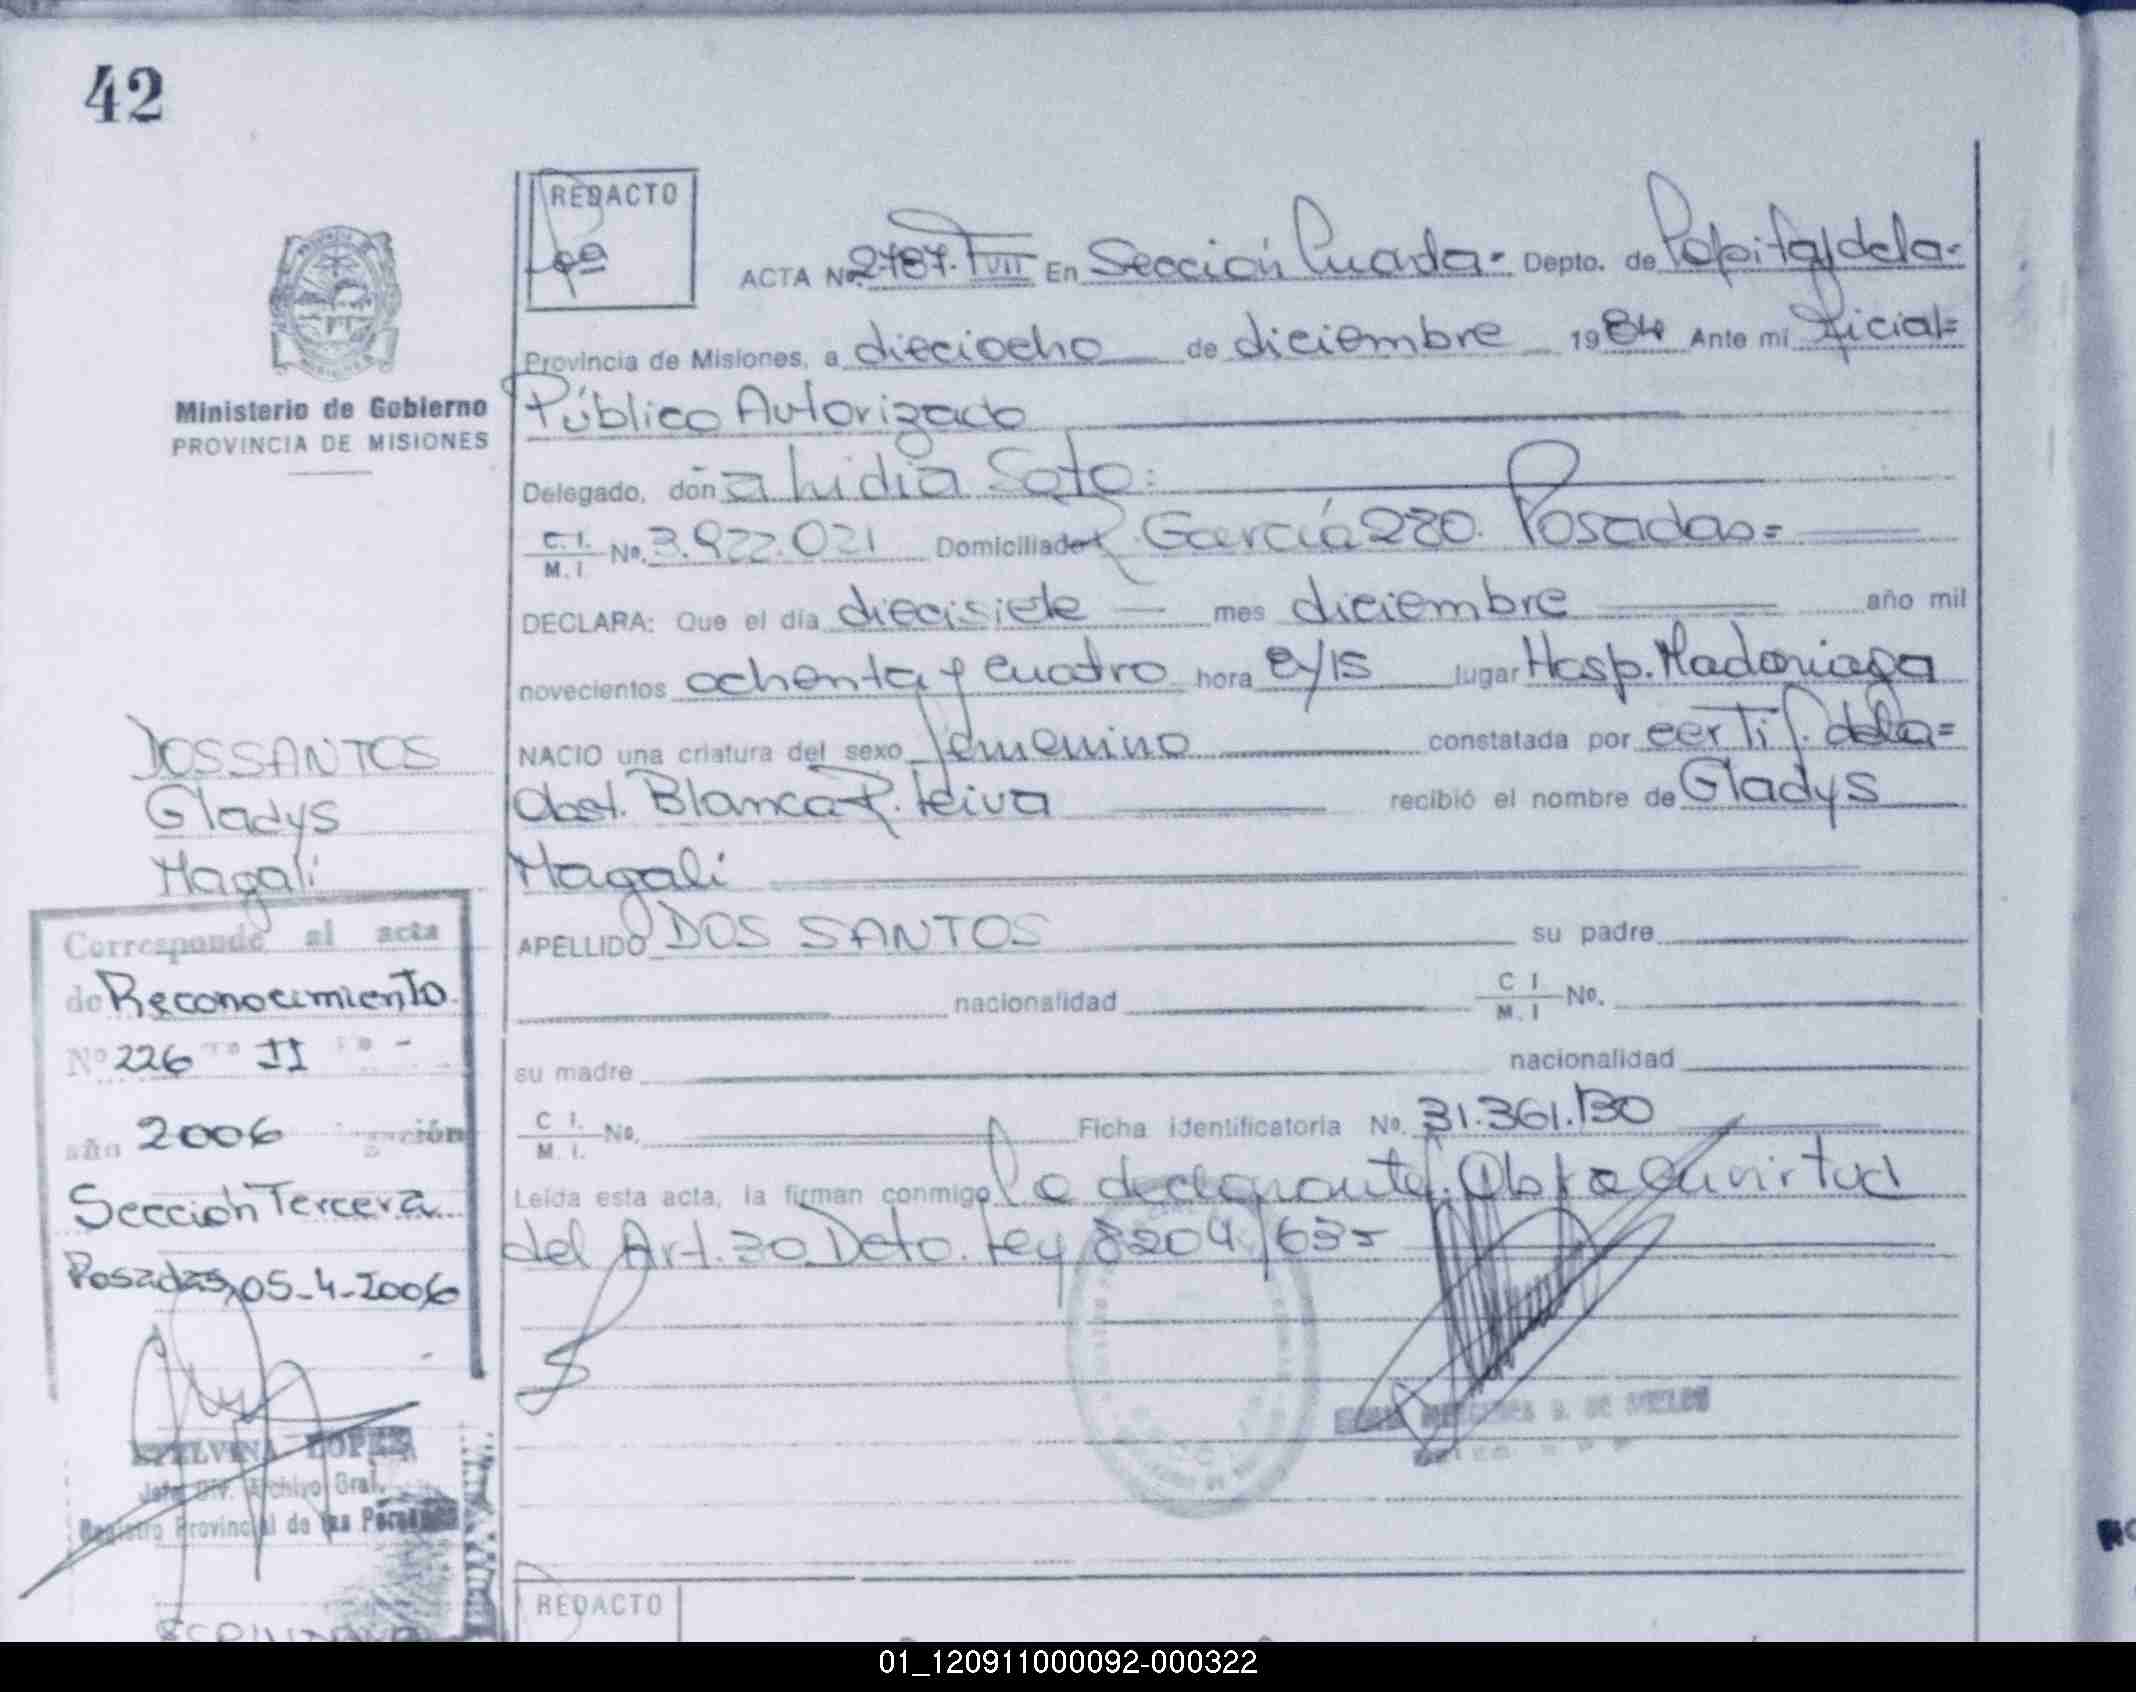 42
REDACTO
ACTA Nº 2787. T VII En Sección Cuarta- Depto. de Capital de la-
Provincia de Misiones, a dieciocho de diciembre 1984 Ante mi Oficial=
Ministerio de Gobierno
PROVINCIA DE MISIONES
Público Autorizado
Delegado, don a Lidia Soto:
C. I. M. I. Nº. 3.922.021 Domiciliado R. García 280. Posadas=
DECLARA: Que el día diecisiete mes diciembre año mil
novecientos ochenta y cuatro hora 2/15 lugar Hosp. Madariaga
NACIO una criatura del sexo femenino constatada por certif. de la=
Obst. Blanca R. Leiva recibió el nombre de Gladys
Magali
APELLIDO DOS SANTOS su padre
nacionalidad C I M. I Nº.
su madre nacionalidad
C I. M. I. Nº. Ficha identificatoria Nº. 31.361.130
Leída esta acta, la firman conmigo la declarante. en virtud
del Art. 30 Dcto. Ley 8204/63-
DOS SANTOS
Gladys
Magali
Corresponde al acta
de Reconocimiento
Nº 226 Tº II Fº -
año 2006
Sección Tercera
Posadas, 05-4-2006
LOPEZ
Jefe Div. Archivo Gral.
Registro Provincial de las Personas
REDACTO
01_120911000092-000322